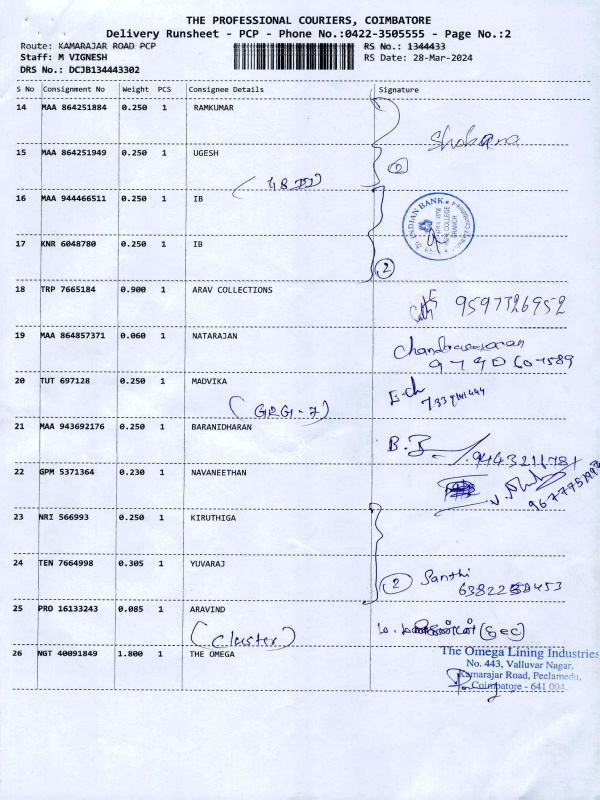 THE PROFESSIONAL COURIERS, COIMBATORE
Delivery Runsheet - PCP - Phone No.:0422-3505555 - Page No.:2
Route: KAMARAJAR ROAD PCP RS No.: 1344433
Staff: M VIGNESH RS Date: 28-Mar-2024
DRS No.: DCJB134443302
S No Consignment No Weight PCS Consignee Details Signature
14 MAA 864251884 0.250 1 RAMKUMAR
Shobana
15 MAA 864251949 0.250 1 UGESH
2
16 MAA 944466511 0.250 1 IB
INDIAN BANK
17 KNR 6048780 0.250 1 IB
2
18 TRP 7665184 0.900 1 ARAV COLLECTIONS
9597326952
19 MAA 864857371 0.060 1 NATARAJAN
20 TUT 697128 0.250 1 MADVIKA
(GRG-7)
21 MAA 943692176 0.250 1 BARANIDHARAN
22 GPM 5371364 0.230 1 NAVANEETHAN
23 NRI 566993 0.250 1 KIRUTHIGA
24 TEN 7664998 0.305 1 YUVARAJ
2 Santhi
25 PRO 16133243 0.085 1 ARAVIND
(Cluster) (Sec)
26 NGT 40091849 1.800 1 THE OMEGA
The Omega Lining Industries
No. 443, Valluvar Nagar,
Kamarajar Road, Peelamedu,
Coimbatore - 641 004.